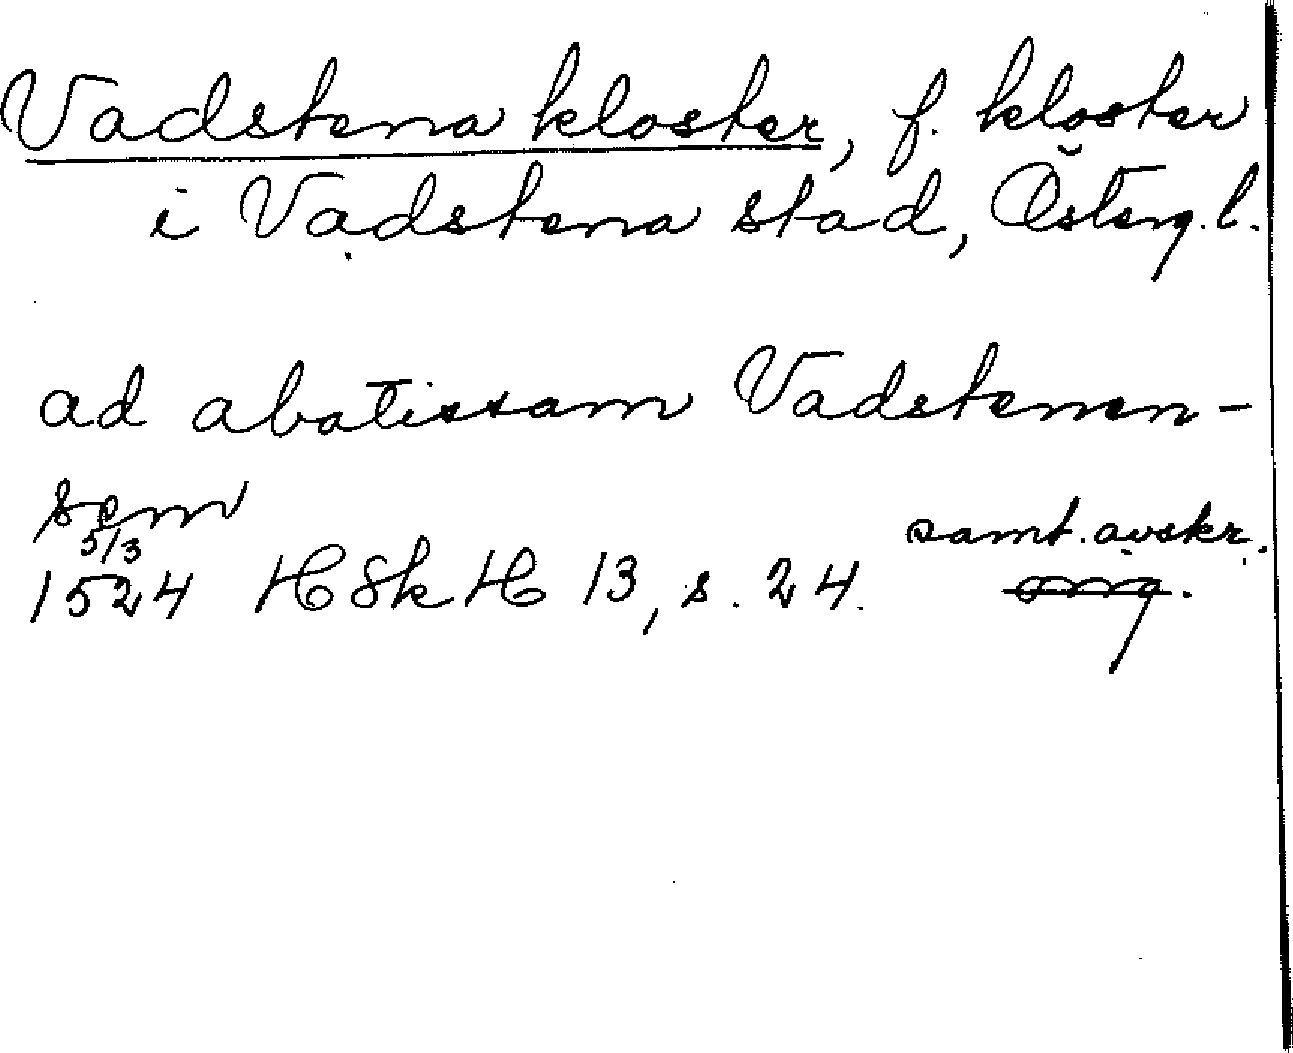 Vadstena kloster, f. kloster
i Vadstena stad, Österg. l.
ad abatissam Vadstenen-
sem
5/3 samt. avskr.
1524 HSkH 13, s. 24. orig.